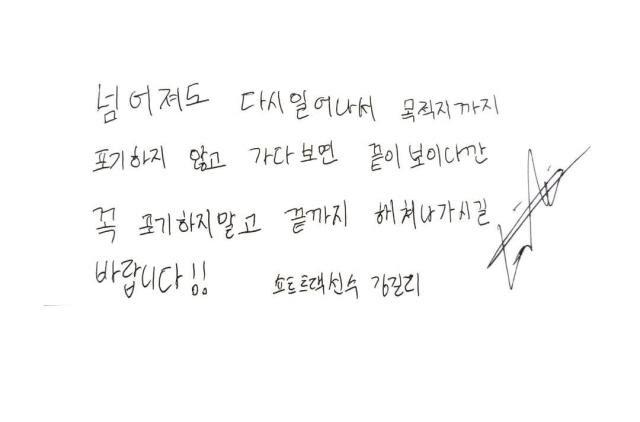 넘어져도 다시일어나서 목적지까지
포기하지 않고 가다보면 끝이보이니깐
꼭 포기하지말고 끝까지 헤쳐나가시길
바랍니다!! 쇼트트랙선수 김길리